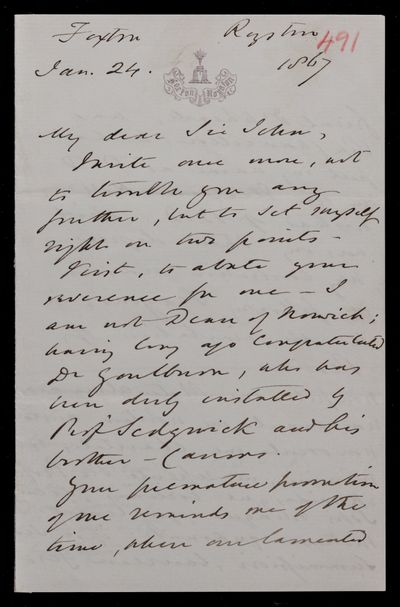 Foxton Royston 491
Jan. 24. 1867
My dear Sir John,
I write once more, not
to trouble you any
further, but to set myself
right on two points -
First, to abate your
reverence for me - I
am not Dean of Norwich;
having long ago congratulated
Dr Goulburn, who has
been duly installed by
Prof Sedgwick and his
brother - Canons.
Your premature promotion
of me reminds me of the
time, when our lamented